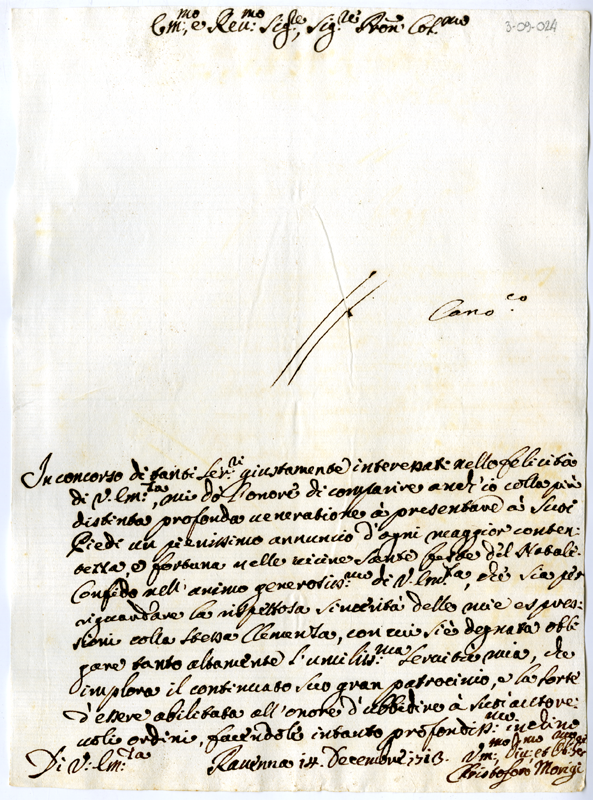 Em.mo, e Reu.mo Sig.re, Sig.re Pron Col.mo
3-09-024
Cano.co
In concorso di tanti Ser.ri giustamente interessati nella felicità
di V. Em.ta, mi dò l'onore di comparire anch'io colla più
distinta profonda ueneratione à presentare à Suoi
Piedi un pienissimo annuncio d'ogni maggior conten-
tezza, e fortuna nelle uicine Sante feste del Natale
Confido nell'animo generosiss.mo di V. Em.ta, che sia per
riguardare la rispettosa sincerità delle mie espres-
sioni colla stessa Clemenza, con cui si è degnata obli-
gare tanto altamente l'umiliss.ma seruitù mia, che
implora il continuato suo gran patrocinio, e la sorte
d'essere abilitata all'onore d'ubbidire à suoi autore-
uoli ordini, facendole intanto profondiss.mo inchino
Di V. Em.ta Rauenna 14. Decembre 1713.
Christoforo Morigi